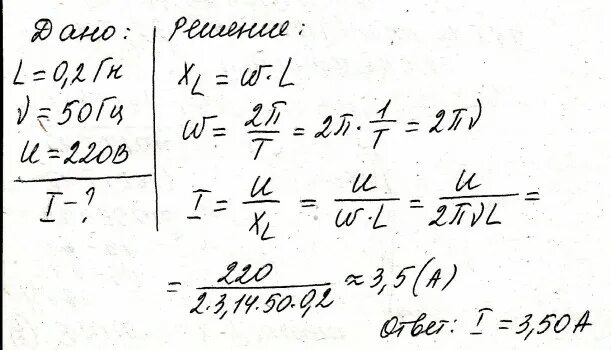 Дано:
L = 0,2 Гн
ν = 50 Гц
U = 220 В
I - ?
Решение:
X_L = ω · L
ω = 2π/T = 2π · 1/T = 2πν
I = U/X_L = U/(ω · L) = U/(2πνL) =
= 220/(2 · 3,14 · 50 · 0,2) ≈ 3,5 (А)
Ответ: I = 3,50 А